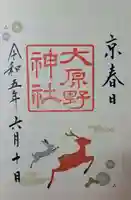 京春日
大原野
神社
令和五年六月十日